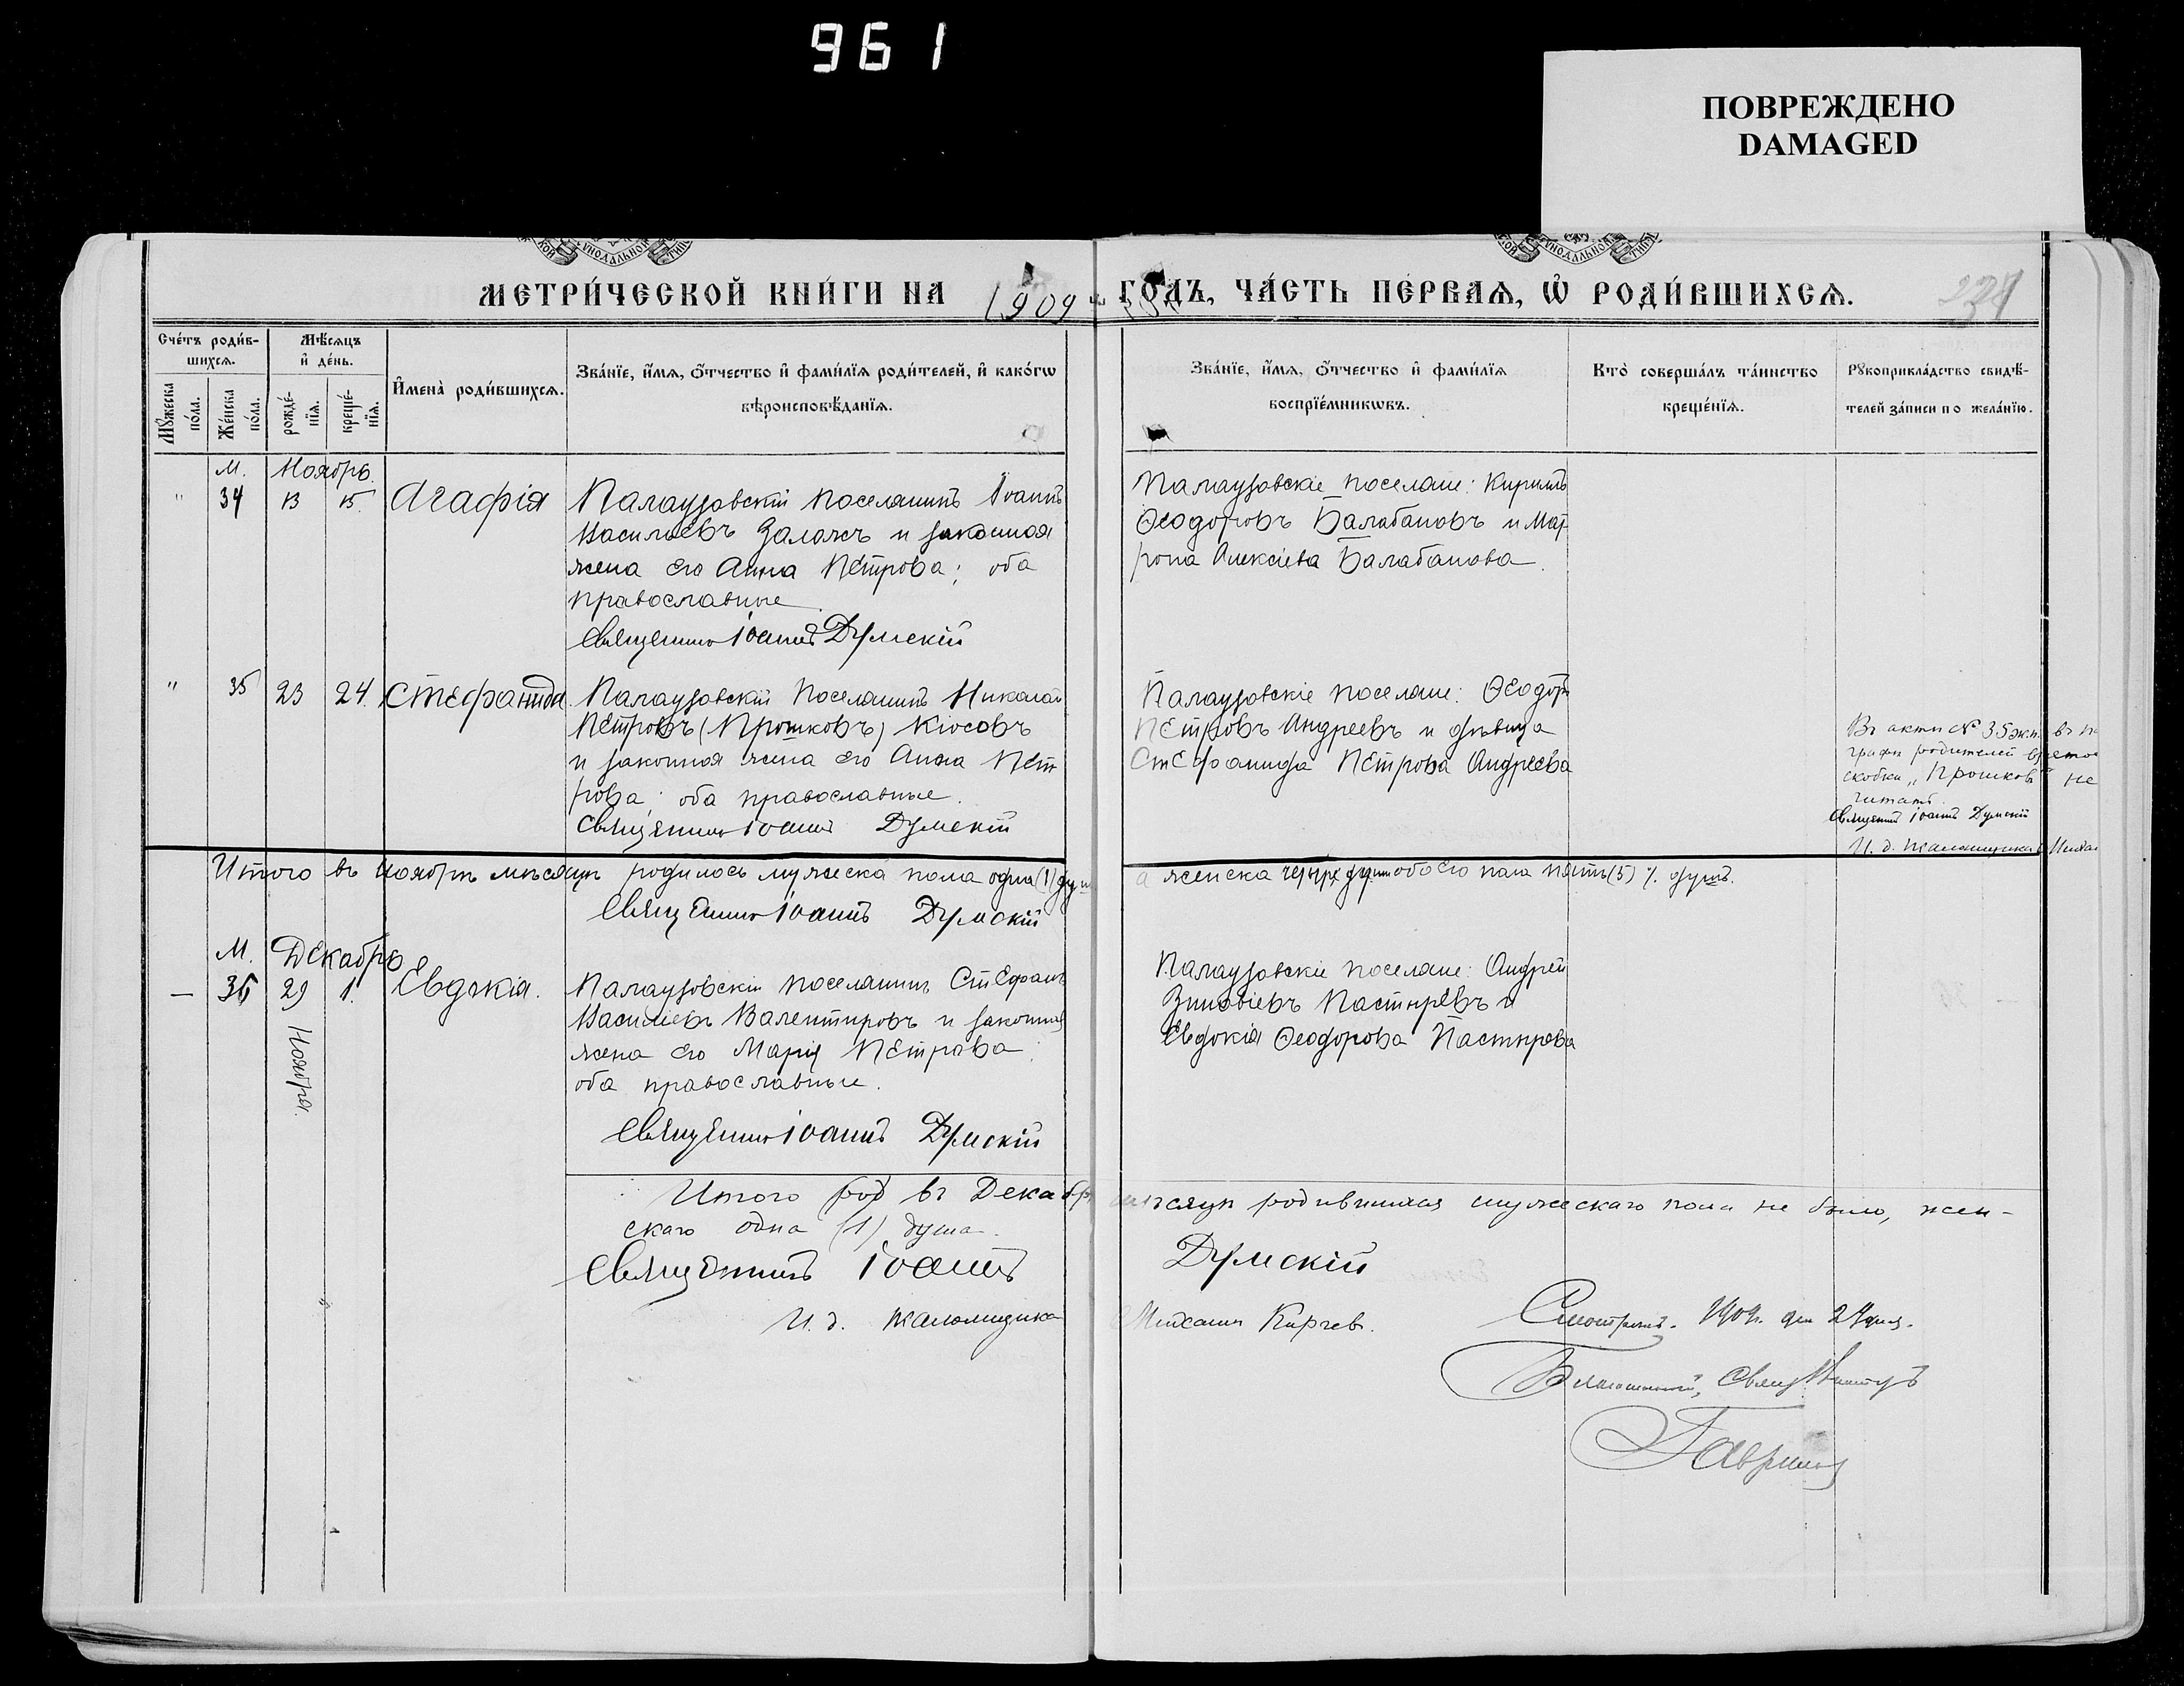 961
ПОВРЕЖДЕНО
DAMAGED
МЕТРИ́ЧЕСКОЙ КНИ́ГИ НА 1909 ГО́ДЪ, ЧА́СТЬ ПЕ́РВАѦ, Ѽ РОДИ́ВШИХСѦ.
Сче́тъ роди́в-
шихсѧ.
Мѣ́сѧцъ
и҆ де́нь.
И҆мена̀ роди́вшихсѧ.
Зва́нїе, и҆́мѧ, ѻ҆́тчество и҆ фами́лїѧ роди́телей, и҆ како́гѡ
вѣроисповѣ́данїѧ.
Мꙋ́жеска
по́ла.
Же́нска
по́ла.
рожде́-
нїѧ.
креще́-
нїѧ.
Зва́нїе, и҆́мѧ, ѻ҆́тчество и҆ фами́лїѧ
воспрїе́мникѡвъ.
Кто̀ соверша́лъ та́инство
креще́нїѧ.
Рꙋкоприкла́дство свидѣ́-
телей за́писи по жела́нїю.
М. Ноябрь.
" 34 13 15. Агафія
Палаузовскій поселянинъ Іоаннъ
Васильевъ Заложъ и законная
жена его Анна Петрова; оба
православные.
Священникъ Іоаннъ Думскій
Палаузовскіе поселяне: Кириллъ
Ѳеодоровъ Балабановъ и Мат-
рона Алексіева Балабанова.
" 35 23 24. Стефанида.
Палаузовскій поселянинъ Николай
Петровъ (Прошковъ) Кіосовъ
и законная жена его Анна Пет-
рова; оба православные.
Священникъ Іоаннъ Думскій
Палаузовскіе поселяне: Ѳеодоръ
Петровъ Андреевъ и дѣвица
Стефанида Петрова Андреева
Въ акти № 35 ж.п. въ
графѣ родителей взятое
скобки „Прошковъ" не
читать.
Священникъ Іоаннъ Думскій
И. д. псаломщика
Итого въ Ноябрѣ мѣсяцѣ родилось мужеска пола одна (1) душа, а женска четыре душ обоего пола пять (5) душъ.
Священникъ Іоаннъ Думскій
М. Декабрь
— 36 29 1. Евдокія.
Ноября.
Палаузовскій поселянинъ Стефанъ
Василіевъ Валентировъ и законная
жена его Марія Петрова;
оба православные.
Священникъ Іоаннъ Думскій
Палаузовскіе поселяне: Андрей
Зиновіевъ Пастыревъ и
Евдокія Ѳеодорова Пастырева
Итого род въ Декабрѣ мѣсяцѣ родившихся мужескаго пола не было, жен-
скаго одна (1) душа.
Священникъ Іоаннъ Думскій
И. д. псаломщика Михаилъ Киргев.
Смотрѣлъ. 1909.
Благочинный, Священникъ